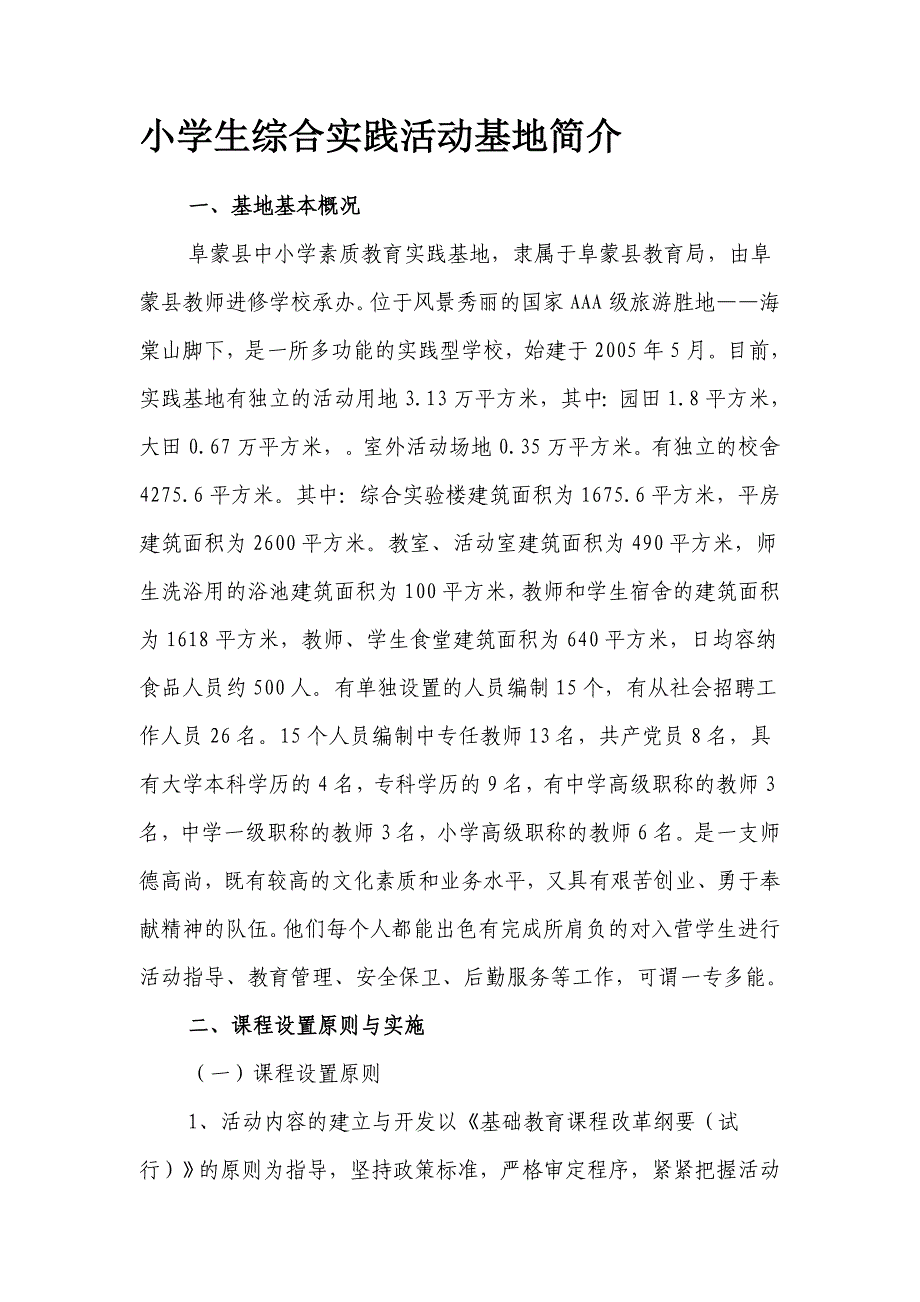 小学生综合实践活动基地简介
一、基地基本概况
阜蒙县中小学素质教育实践基地，隶属于阜蒙县教育局，由阜
蒙县教师进修学校承办。位于风景秀丽的国家 AAA 级旅游胜地——海
棠山脚下，是一所多功能的实践型学校，始建于 2005 年 5 月。目前，
实践基地有独立的活动用地 3.13 万平方米，其中：园田 1.8 平方米，
大田 0.67 万平方米，。室外活动场地 0.35 万平方米。有独立的校舍
4275.6 平方米。其中：综合实验楼建筑面积为 1675.6 平方米，平房
建筑面积为 2600 平方米。教室、活动室建筑面积为 490 平方米，师
生洗浴用的浴池建筑面积为 100 平方米，教师和学生宿舍的建筑面积
为 1618 平方米，教师、学生食堂建筑面积为 640 平方米，日均容纳
食品人员约 500 人。有单独设置的人员编制 15 个，有从社会招聘工
作人员 26 名。15 个人员编制中专任教师 13 名，共产党员 8 名，具
有大学本科学历的 4 名，专科学历的 9 名，有中学高级职称的教师 3
名，中学一级职称的教师 3 名，小学高级职称的教师 6 名。是一支师
德高尚，既有较高的文化素质和业务水平，又具有艰苦创业、勇于奉
献精神的队伍。他们每个人都能出色有完成所肩负的对入营学生进行
活动指导、教育管理、安全保卫、后勤服务等工作，可谓一专多能。
二、课程设置原则与实施
（一）课程设置原则
1、活动内容的建立与开发以《基础教育课程改革纲要（试
行）》的原则为指导，坚持政策标准，严格审定程序，紧紧把握活动